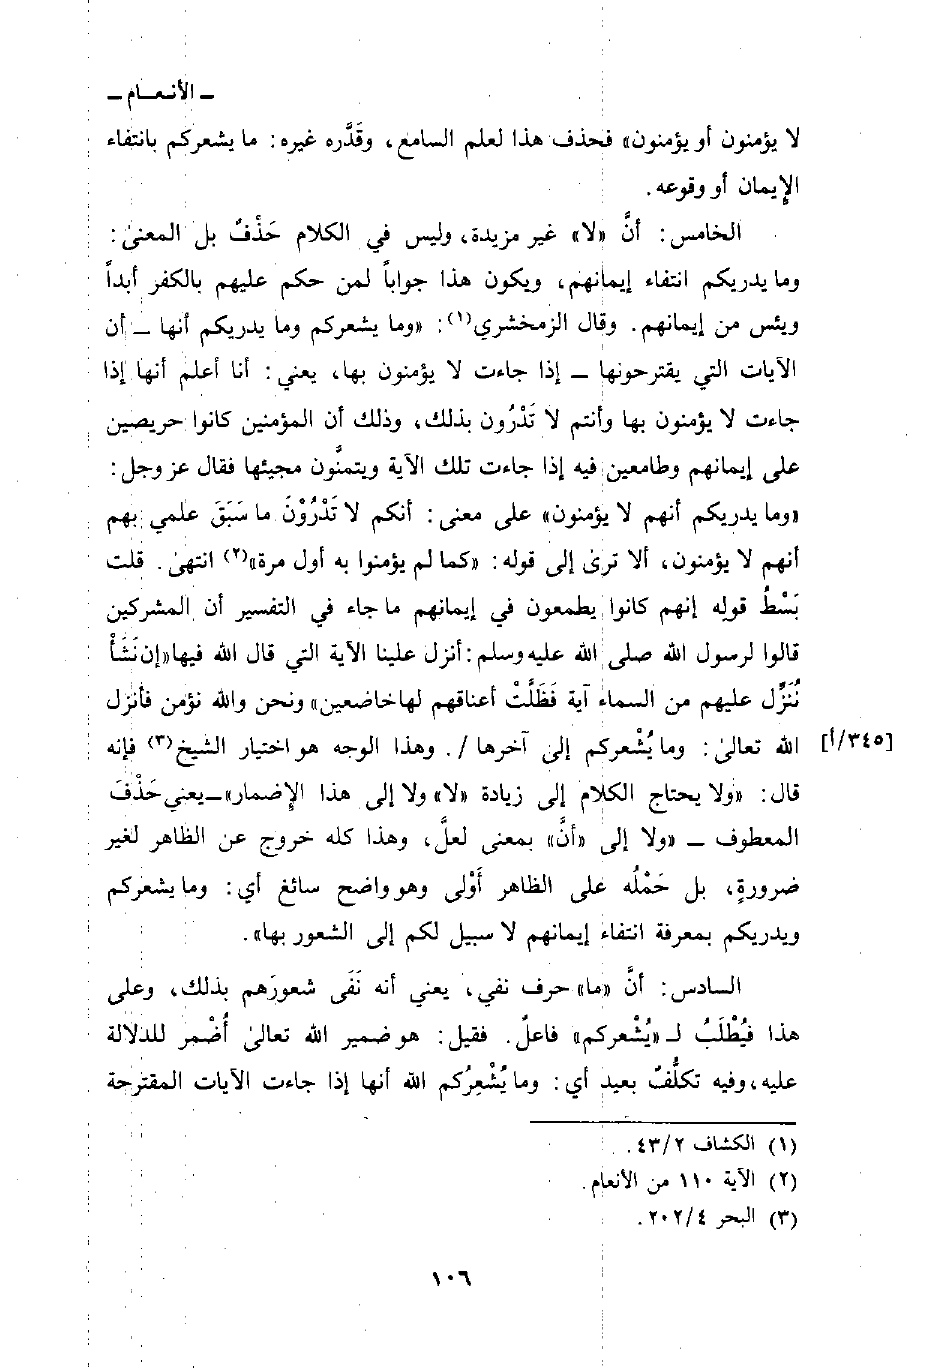 ـ الأنعـام ـ
لا يؤمنون أو يؤمنون» فحذف هذا لعلم السامع، وقَدَّره غيره: ما يشعركم بانتفاء
الإِيمان أو وقوعه.
الخامس: أنَّ «لا» غير مزيدة، وليس في الكلام حَذْفٌ بل المعنىٰ:
وما يدريكم انتفاء إيمانهم، ويكون هذا جواباً لمن حكم عليهم بالكفر أبداً
ويئس من إيمانهم. وقال الزمخشري(١): «وما يشعركم وما يدريكم أنها ـ أن
الآيات التي يقترحونها ـ إذا جاءت لا يؤمنون بها، يعني: أنا أعلم أنها إذا
جاءت لا يؤمنون بها وأنتم لا تَدْرُون بذلك، وذلك أن المؤمنين كانوا حريصين
على إيمانهم وطامعين فيه إذا جاءت تلك الآية ويتمنَّون مجيئها فقال عز وجل:
«وما يدريكم أنهم لا يؤمنون» على معنى: أنكم لا تَدْرُوْنَ ما سَبَقَ علمي بهم
أنهم لا يؤمنون، ألا ترىٰ إلى قوله: «كما لم يؤمنوا به أول مرة»(٢) انتهىٰ. قلت
بَسْطُ قولِه إنهم كانوا يطمعون في إيمانهم ما جاء في التفسير أن المشركين
قالوا لرسول الله صلى الله عليه وسلم: أنزل علينا الآية التي قال الله فيها «إن نَشَأْ
نُنَزِّل عليهم من السماء آية فَظَلَّتْ أعناقهم لها خاضعين» ونحن والله نؤمن فأنزل
الله تعالىٰ: وما يُشْعركم إلى آخرها /. وهذا الوجه هو اختيار الشيخ(٣) فإنه [٣٤٥/أ]
قال: «ولا يحتاج الكلام إلى زيادة «لا» ولا إلى هذا الإِضمار» ـ يعني حَذْفَ
المعطوف ـ «ولا إلى «أنَّ» بمعنى لعلَّ، وهذا كله خروج عن الظاهر لغير
ضرورةٍ، بل حَمْلُه على الظاهر أَوْلى وهو واضح سائغ أي: وما يشعركم
ويدريكم بمعرفة انتفاء إيمانهم لا سبيل لكم إلى الشعور بها».
السادس: أنَّ «ما» حرف نفي، يعني أنه نَفَى شعورَهم بذلك، وعلى
هذا فيُطْلَبُ لـ «يُشْعركم» فاعلٌ. فقيل: هو ضمير الله تعالىٰ أُضْمر للدلالة
عليه، وفيه تكلُّفٌ بعيد أي: وما يُشْعِرُكم الله أنها إذا جاءت الآيات المقترحة
(١) الكشاف ٤٣/٢.
(٢) الآية ١١٠ من الأنعام.
(٣) البحر ٢٠٢/٤.
١٠٦